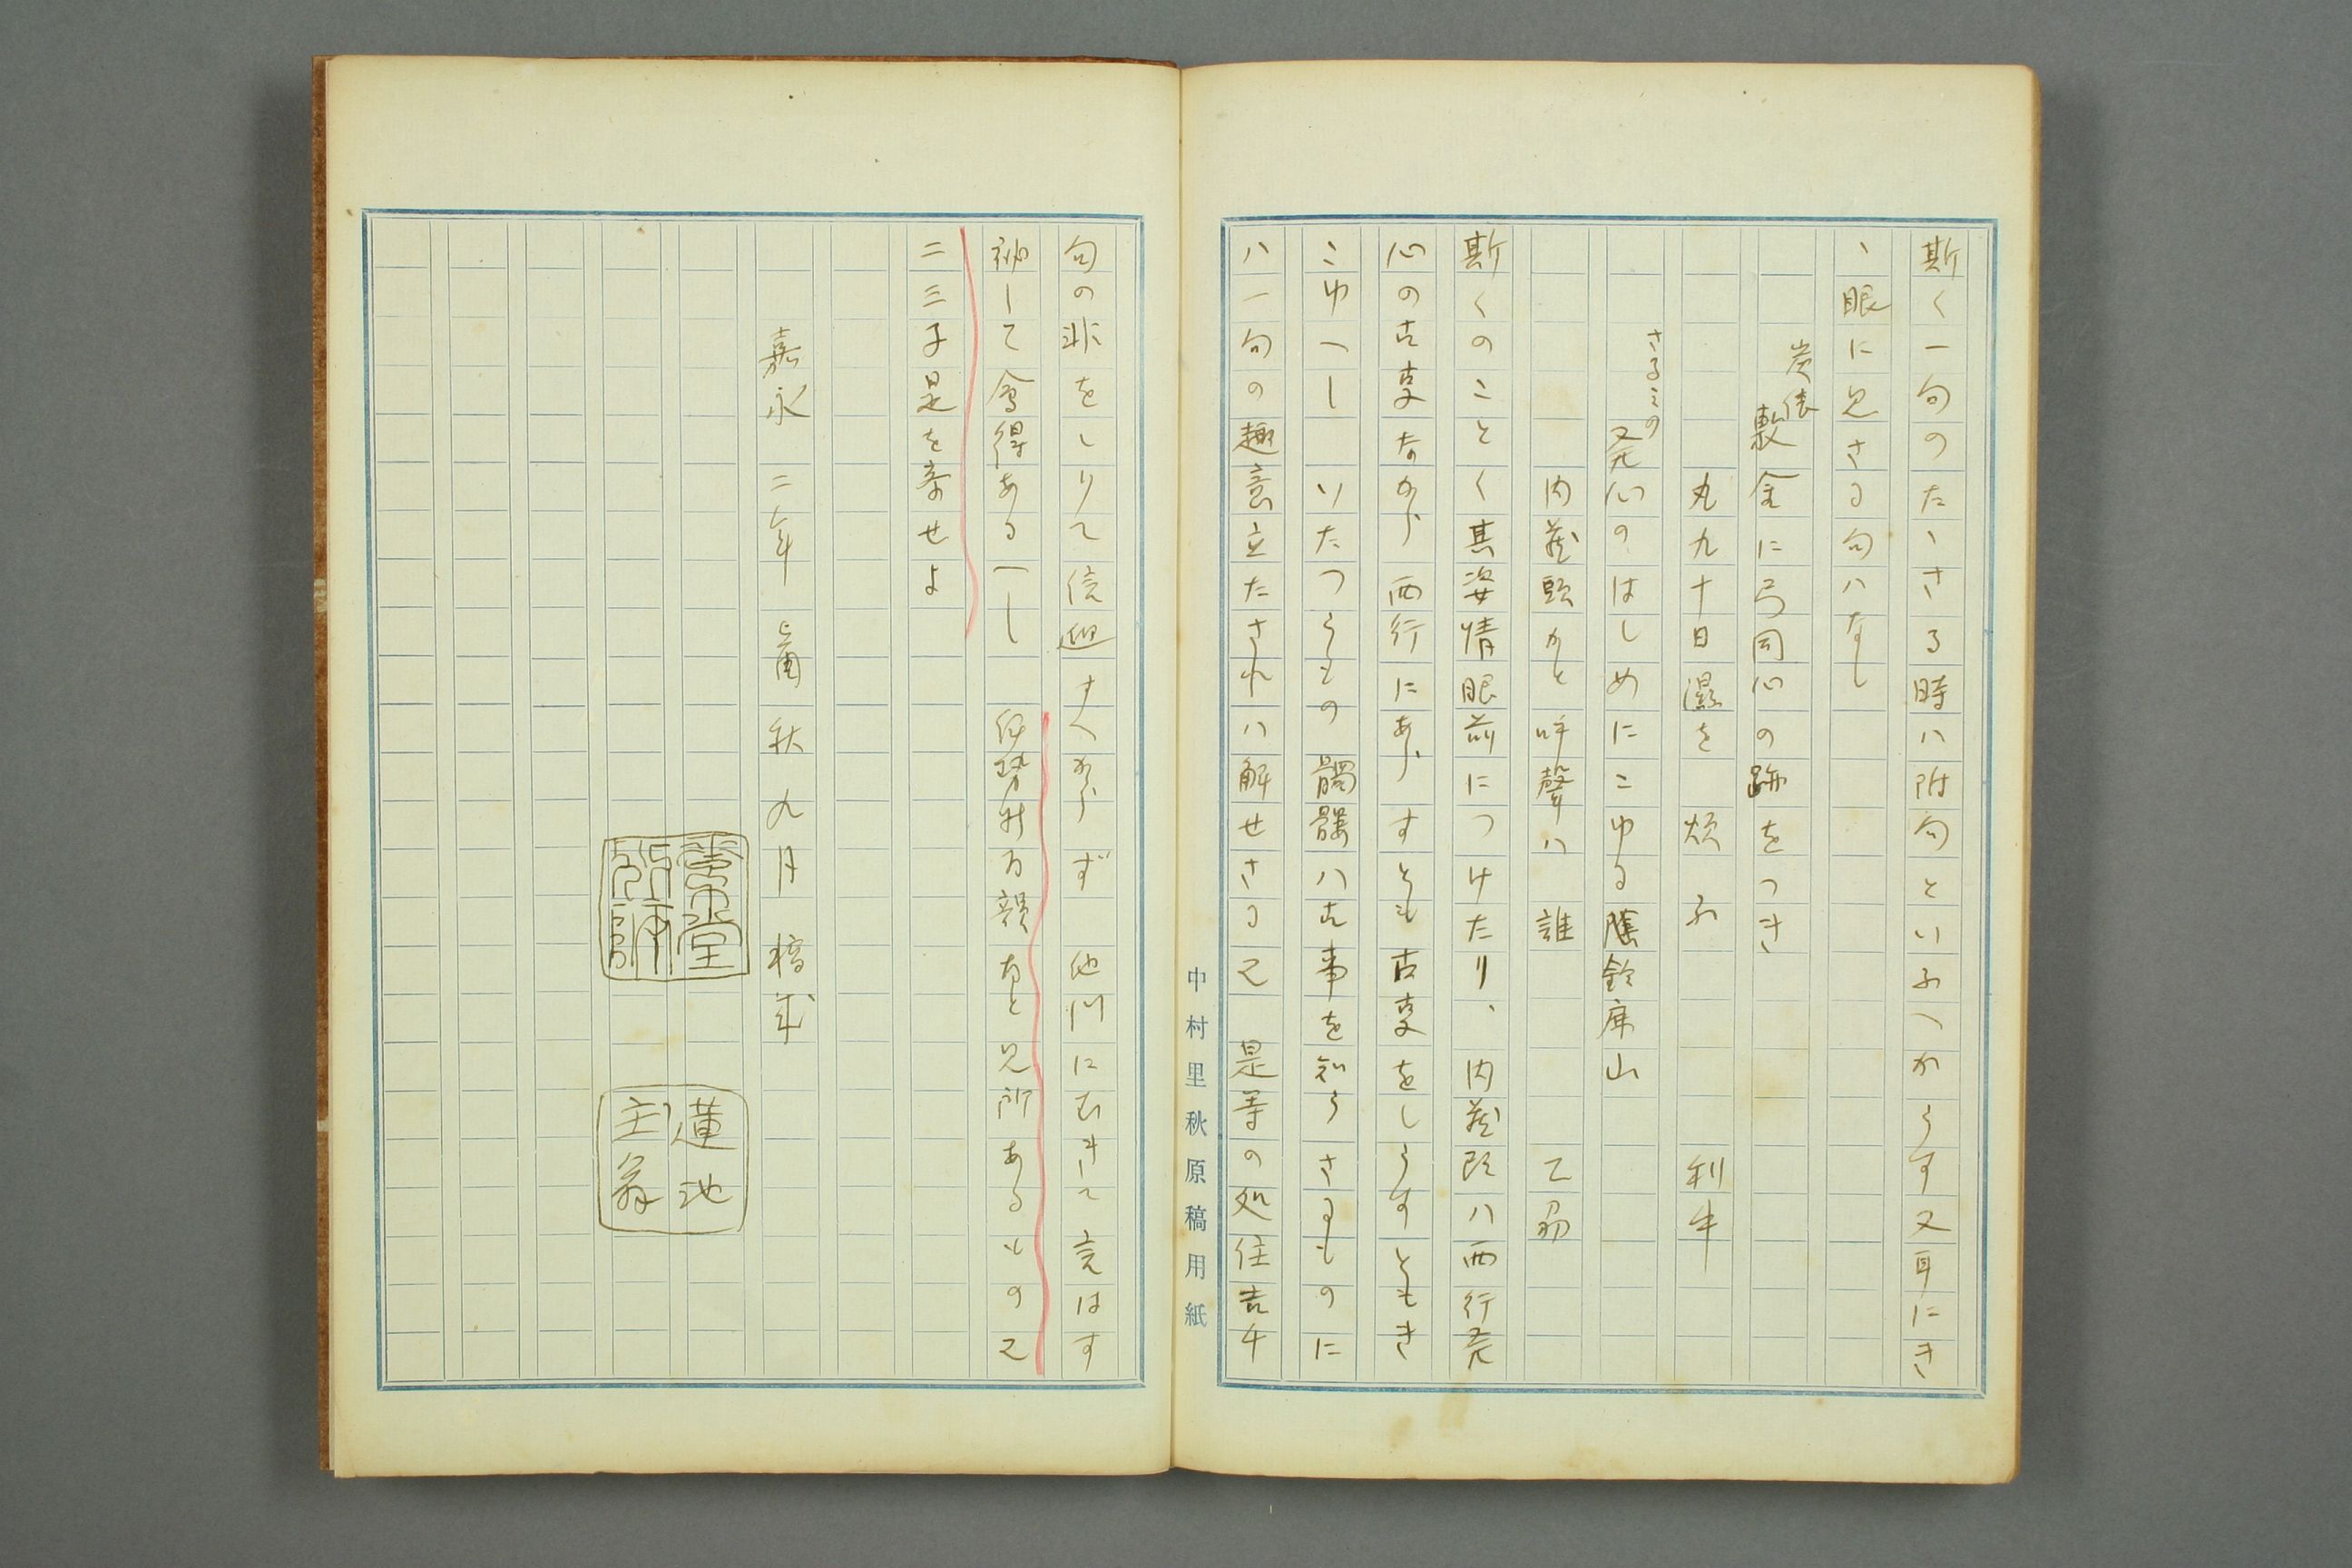 斯く一句のたゝさる時ハ附句といふへからす又耳にき
ゝ眼に見さる句ハなし
炭俵
敷金に弓同心の跡をつき
丸九十日濕を煩ふ　利牛
さるみの
発心のはしめにこゆる鈴鹿山
内蔵頭かと呼聲ハ誰　乙州
斯くのことく其姿情眼前につけたり、内蔵頭ハ西行発
心の古事なから西行にあらすとも古事をしらすともき
こゆへし　いたつらもの髑髏ハ古事を知らさるものに
ハ一句の趣意立たされハ解せさる也　是等の処住吉千
句の非をしりて信仰すへからず　他門にむきて言はす
秘して会得あるへし
なと見所あるもの也
二三子是を察せよ
嘉永二年酉秋九月稿成
蓮池
主翁
中村里秋原稿用紙